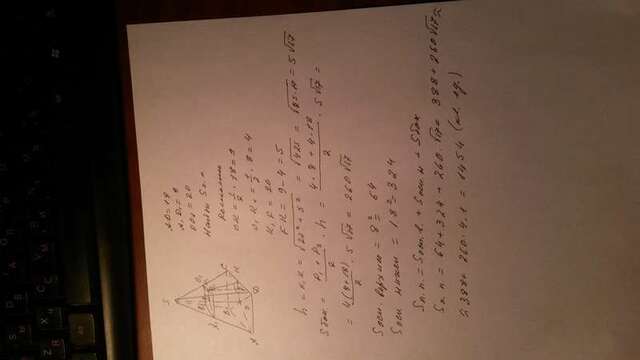 AD=18
A₁D₁=8
OO₁=20
Найти Sп.п
Решение
OK=1/2·18=9
O₁K₁=1/2·8=4
K₁F=20
FK=9-4=5
h=K₁K=√20²+5²=√425=√25·17=5√17
Sбок=P₁+P₂/2·h=4·8+4·18/2·5√17=
=4(8+18)/2·5√17=260√17
Sосн верхнее=8²=64
Sосн нижнее=18²=324
Sп.п.=Sосн.в+Sосн.н+Sбок
Sп.п=64+324+260·√17=388+260√17≈
≈388+260·4.1=1454 (кв. ед.)
S
A
B
C
D
K